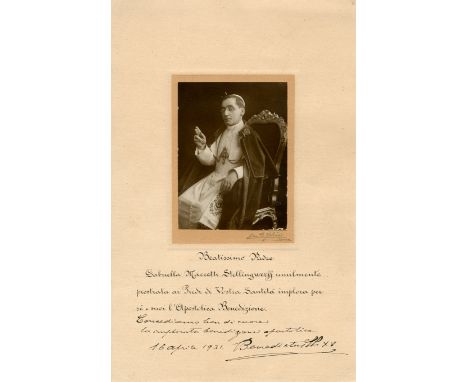 Beatissimo Padre
Gabriella Stellingwerff umilmente
prostrata ai Piedi di Vostra Santità implora per
sè e suoi l'Apostolica Benedizione.
Concediamo ben di cuore
la implorata benedizione apostolica
16 aprile 1921 Benedictus PP. XV